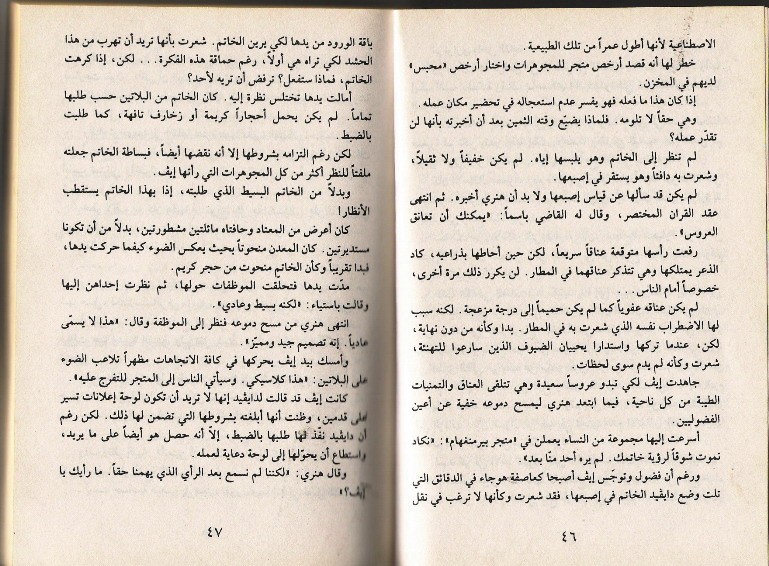 الاصطناعية لأنها أطول عمراً من تلك الطبيعية.
خطر لها أنه قصد أرخص متجر للمجوهرات واختار أرخص «محبس»
لديهم في المخزن.
إذا كان هذا ما فعله فهو يفسر عدم استعجاله في تحضير مكان عمله.
وهي حقاً لا تلومه. فلماذا يضيّع وقته الثمين بعد أن أخبرته بأنها لن
تقدّر عمله؟
لم تنظر إلى الخاتم وهو يلبسها إياه. لم يكن خفيفاً ولا ثقيلاً،
وشعرت به دافئاً وهو يستقر في إصبعها.
لم يكن قد سألها عن قياس إصبعها ولا بد أن هنري أخبره. ثم انتهى
عقد القران المختصر، وقال له القاضي باسماً: «يمكنك أن تعانق
العروس».
رفعت رأسها متوقعة عناقاً سريعاً، لكن حين أحاطها بذراعيه، كاد
الذعر يمتلكها وهي تتذكر عناقهما في المطار. لن يكرر ذلك مرة أخرى،
خصوصاً أمام الناس...
لم يكن عناقه عفوياً كما لم يكن حميماً إلى درجة مزعجة. لكنه سبب
لها الاضطراب نفسه الذي شعرت به في المطار. بدا وكأنه من دون نهاية،
لكن، عندما تركها واستدارا يحييان الضيوف الذين سارعوا للتهنئة،
شعرت وكأنه لم يدم سوى لحظات.
جاهدت إيڤ لكي تبدو عروساً سعيدة وهي تتلقى العناق والتمنيات
الطيبة من كل ناحية، فيما ابتعد هنري ليمسح دموعه خفية عن أعين
الفضوليين.
أسرعت إليها مجموعة من النساء يعملن في «متجر بيرمنغهام»: «نكاد
نموت شوقاً لرؤية خاتمك. لم يره أحد منّا بعد».
ورغم أن فضول وتوجّس إيڤ أصبحا كعاصفة هوجاء في الدقائق التي
تلت وضع دايڤيد الخاتم في إصبعها، فقد شعرت وكأنها لا ترغب في نقل
٤٦
باقة الورود من يدها لكي يرين الخاتم. شعرت بأنها تريد أن تهرب من هذا
الحشد لكي تراه هي أولاً، رغم حماقة هذه الفكرة... لكن، إذا كرهت
الخاتم، فماذا ستفعل؟ ترفض أن تريه لأحد؟
أمالت يدها تختلس نظرة إليه. كان الخاتم من البلاتين حسب طلبها
تماماً. لم يكن يحمل أحجاراً كريمة أو زخارف تافهة، كما طلبت
بالضبط.
لكن رغم التزامه بشروطها إلا أنه نقضها أيضاً، فبساطة الخاتم جعلته
ملفتاً للنظر أكثر من كل المجوهرات التي رأتها إيڤ.
وبدلاً من الخاتم البسيط الذي طلبته، إذا بهذا الخاتم يستقطب
الأنظار!
كان أعرض من المعتاد وحافتاه مائلتين مشطورتين، بدلاً من أن تكونا
مستديرتين. كان المعدن منحوتاً بحيث يعكس الضوء كيفما حركت يدها،
فبدا تقريباً وكأن الخاتم منحوت من حجر كريم.
مدّت يدها فتحلقت الموظفات حولها، ثم نظرت إحداهن إليها
وقالت باستياء: «لكنه بسيط وعادي».
انتهى هنري من مسح دموعه فنظر إلى الموظفة وقال: «هذا لا يسمّى
عادياً. إنه تصميم جيد ومميّز».
وأمسك بيد إيڤ يحركها في كافة الاتجاهات مظهراً تلاعب الضوء
على البلاتين: «هذا كلاسيكي. وسيأتي الناس إلى المتجر للتفرج عليه».
كانت إيڤ قد قالت لدايڤيد إنها لا تريد أن تكون لوحة إعلانات تسير
على قدمين، وظنت أنها أبلغته بشروطها التي تضمن لها ذلك. لكن رغم
أن دايڤيد نفّذ لها طلبها بالضبط، إلاّ أنه حصل هو أيضاً على ما يريد،
واستطاع أن يحوّلها إلى لوحة دعاية لعمله.
وقال هنري: «لكننا لم نسمع بعد الرأي الذي يهمنا حقاً. ما رأيك يا
إيڤ؟»
٤٧